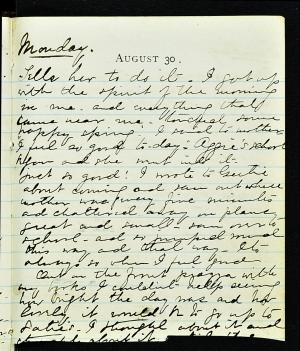 Monday.
AUGUST 30.
Tells her to do it. I got up
with the spirit of the morning
in me. and everything that
came near me. touched some
happy spring. I said to mother
I feel so good to-day. Aggie's school
began and she went into it
just so good! I wrote to Gertie
about coming and saw out where
mother was every five minutes
and chattered away on plans,
great and small, saw on to
school. and so
this way and that way. It's
always so when I feel good.
Out on the front piazza with
my books I couldn't help seeing
how bright the day was and how
lovely it would be to go up to
Satie's. I thought about it and